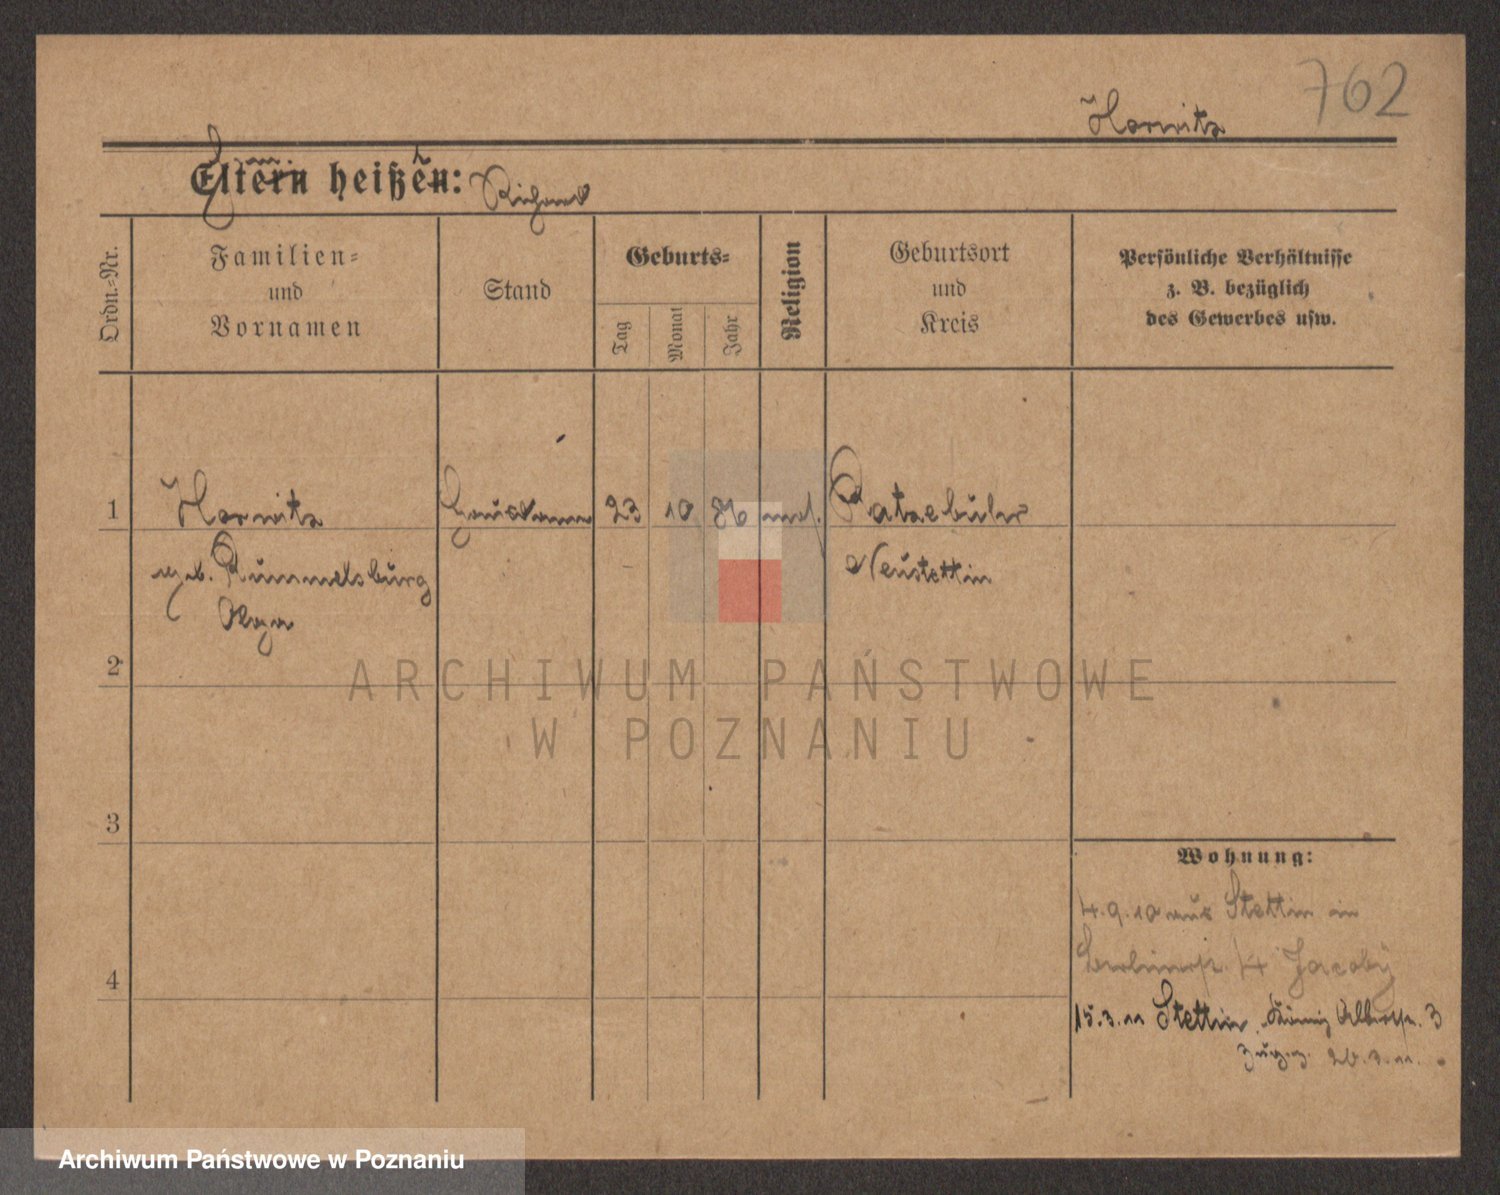 762
Horwitz
Eltern heißen: Richard
Ordn.-Nr.
Familien-
und
Vornamen
Stand
Geburts-
Tag
Monat
Jahr
Religion
Geburtsort
und
Kreis
Persönliche Verhältnisse
z. B. bezüglich
des Gewerbes usw.
1
Horwitz
23 10 86 mos. Ratzebuhr
geb. Rummelsburg
Neustettin
Olga
2
ARCHIWUM PAŃSTWOWE
W POZNANIU
3
Wohnung:
4.9.10 aus Stettin in
4 Jacoby
4
15.3.11 Stettin, König Albertstr. 3
Zugz. 26.3.11.
Archiwum Państwowe w Poznaniu